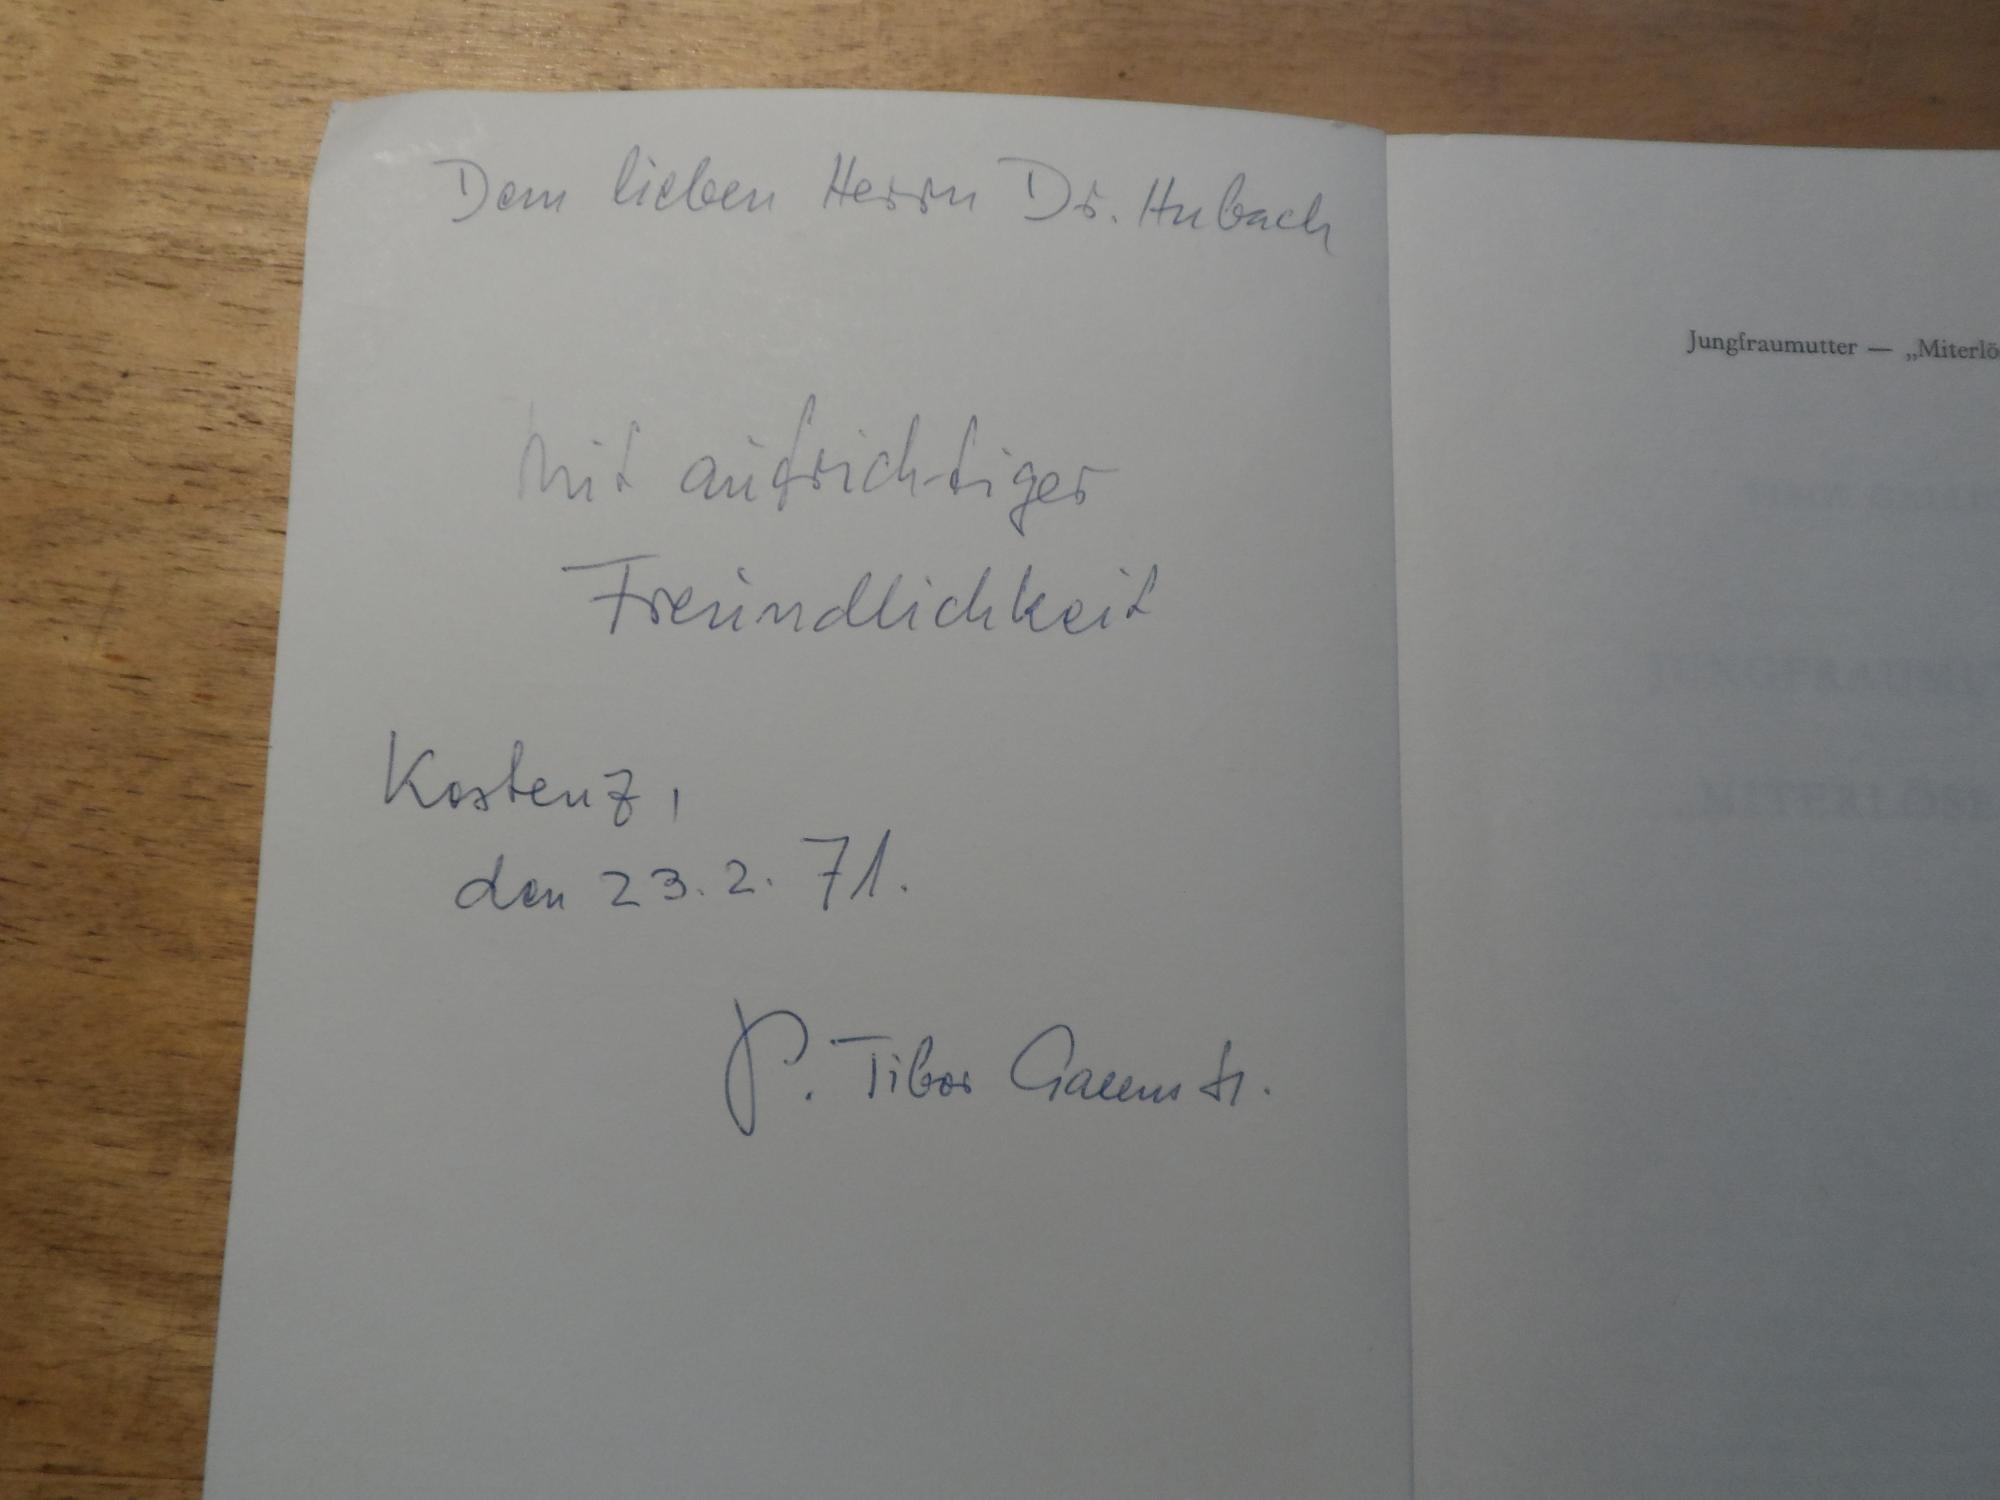 Dem lieben Herrn Dr. Hubach
mit aufrichtiger
Freundlichkeit
Kostenz,
den 23.2.71.
P. Tibor Gallus
Jungfraumutter — „Miterlö
JUNGFRAUMU
„MITERLÖSE